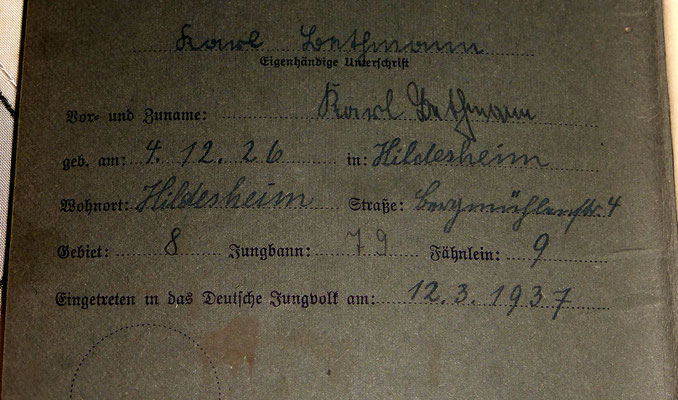 Karl Bethmann
Eigenhändige Unterschrift
Vor- und Zuname: Karl Bethmann
geb. am: 4. 12. 26 in: Hildesheim
Wohnort: Hildesheim Straße: Bergmühlenstr. 4
Gebiet: 8 Jungbann: 79 Fähnlein: 9
Eingetreten in das Deutsche Jungvolk am: 12. 3. 1937